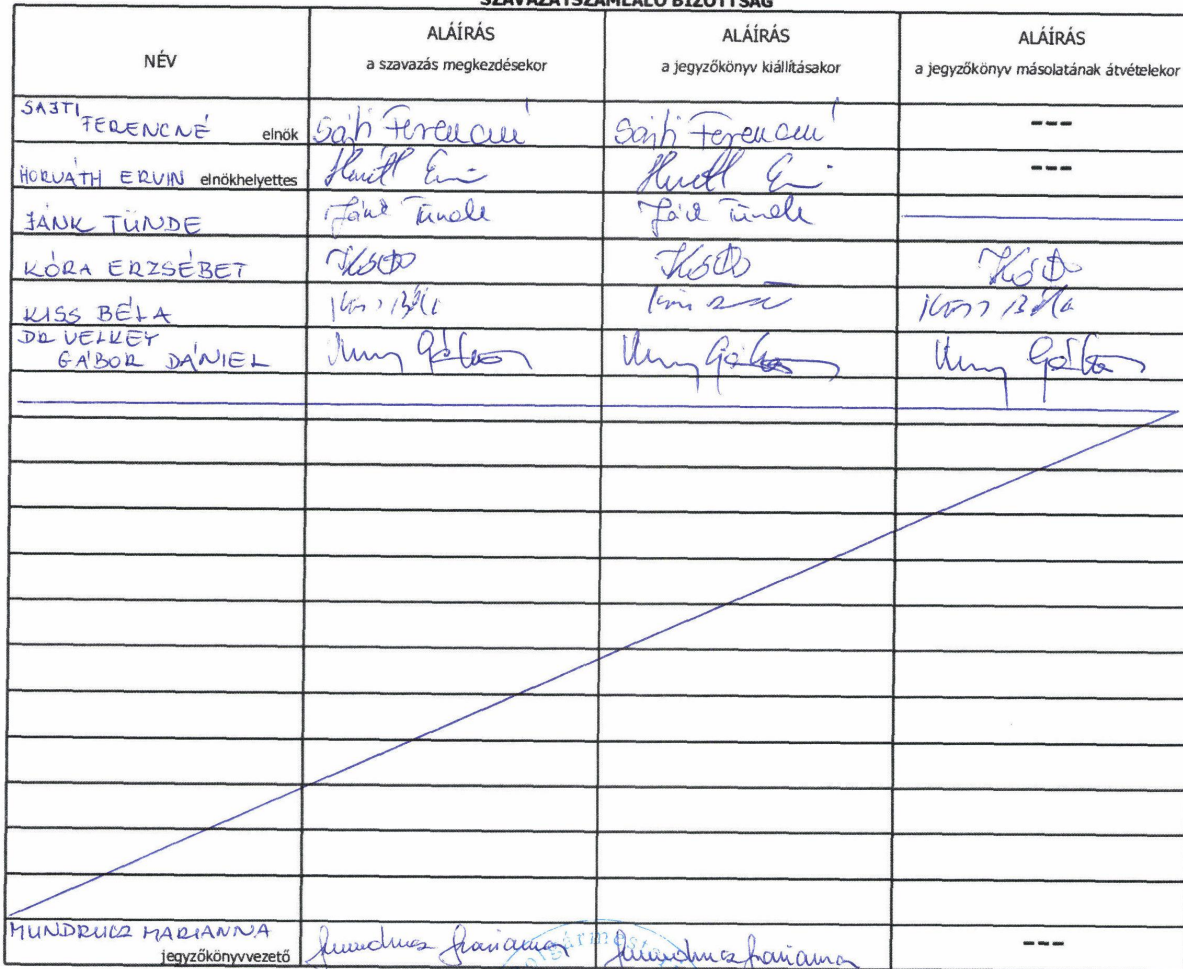 SZAVAZATSZÁMLÁLÓ BIZOTTSÁG
NÉV
ALÁÍRÁS
a szavazás megkezdésekor
ALÁÍRÁS
a jegyzőkönyv kiállításakor
ALÁÍRÁS
a jegyzőkönyv másolatának átvételekor
SAJTI
FERENCNÉ elnök Sajti Ferencné Sajti Ferencné ---
HORVÁTH ERVIN elnökhelyettes ---
JÁNK TÜNDE Jánk Tünde Jánk Tünde
KÓRA ERZSÉBET
KISS BÉLA Kiss Béla Kiss Béla
DR VELKEY
GÁBOR DÁNIEL Gábor Gábor Gábor
MUNDRUCZ MARIANNA
jegyzőkönyvvezető Mundrucz Marianna Mundrucz Marianna ---